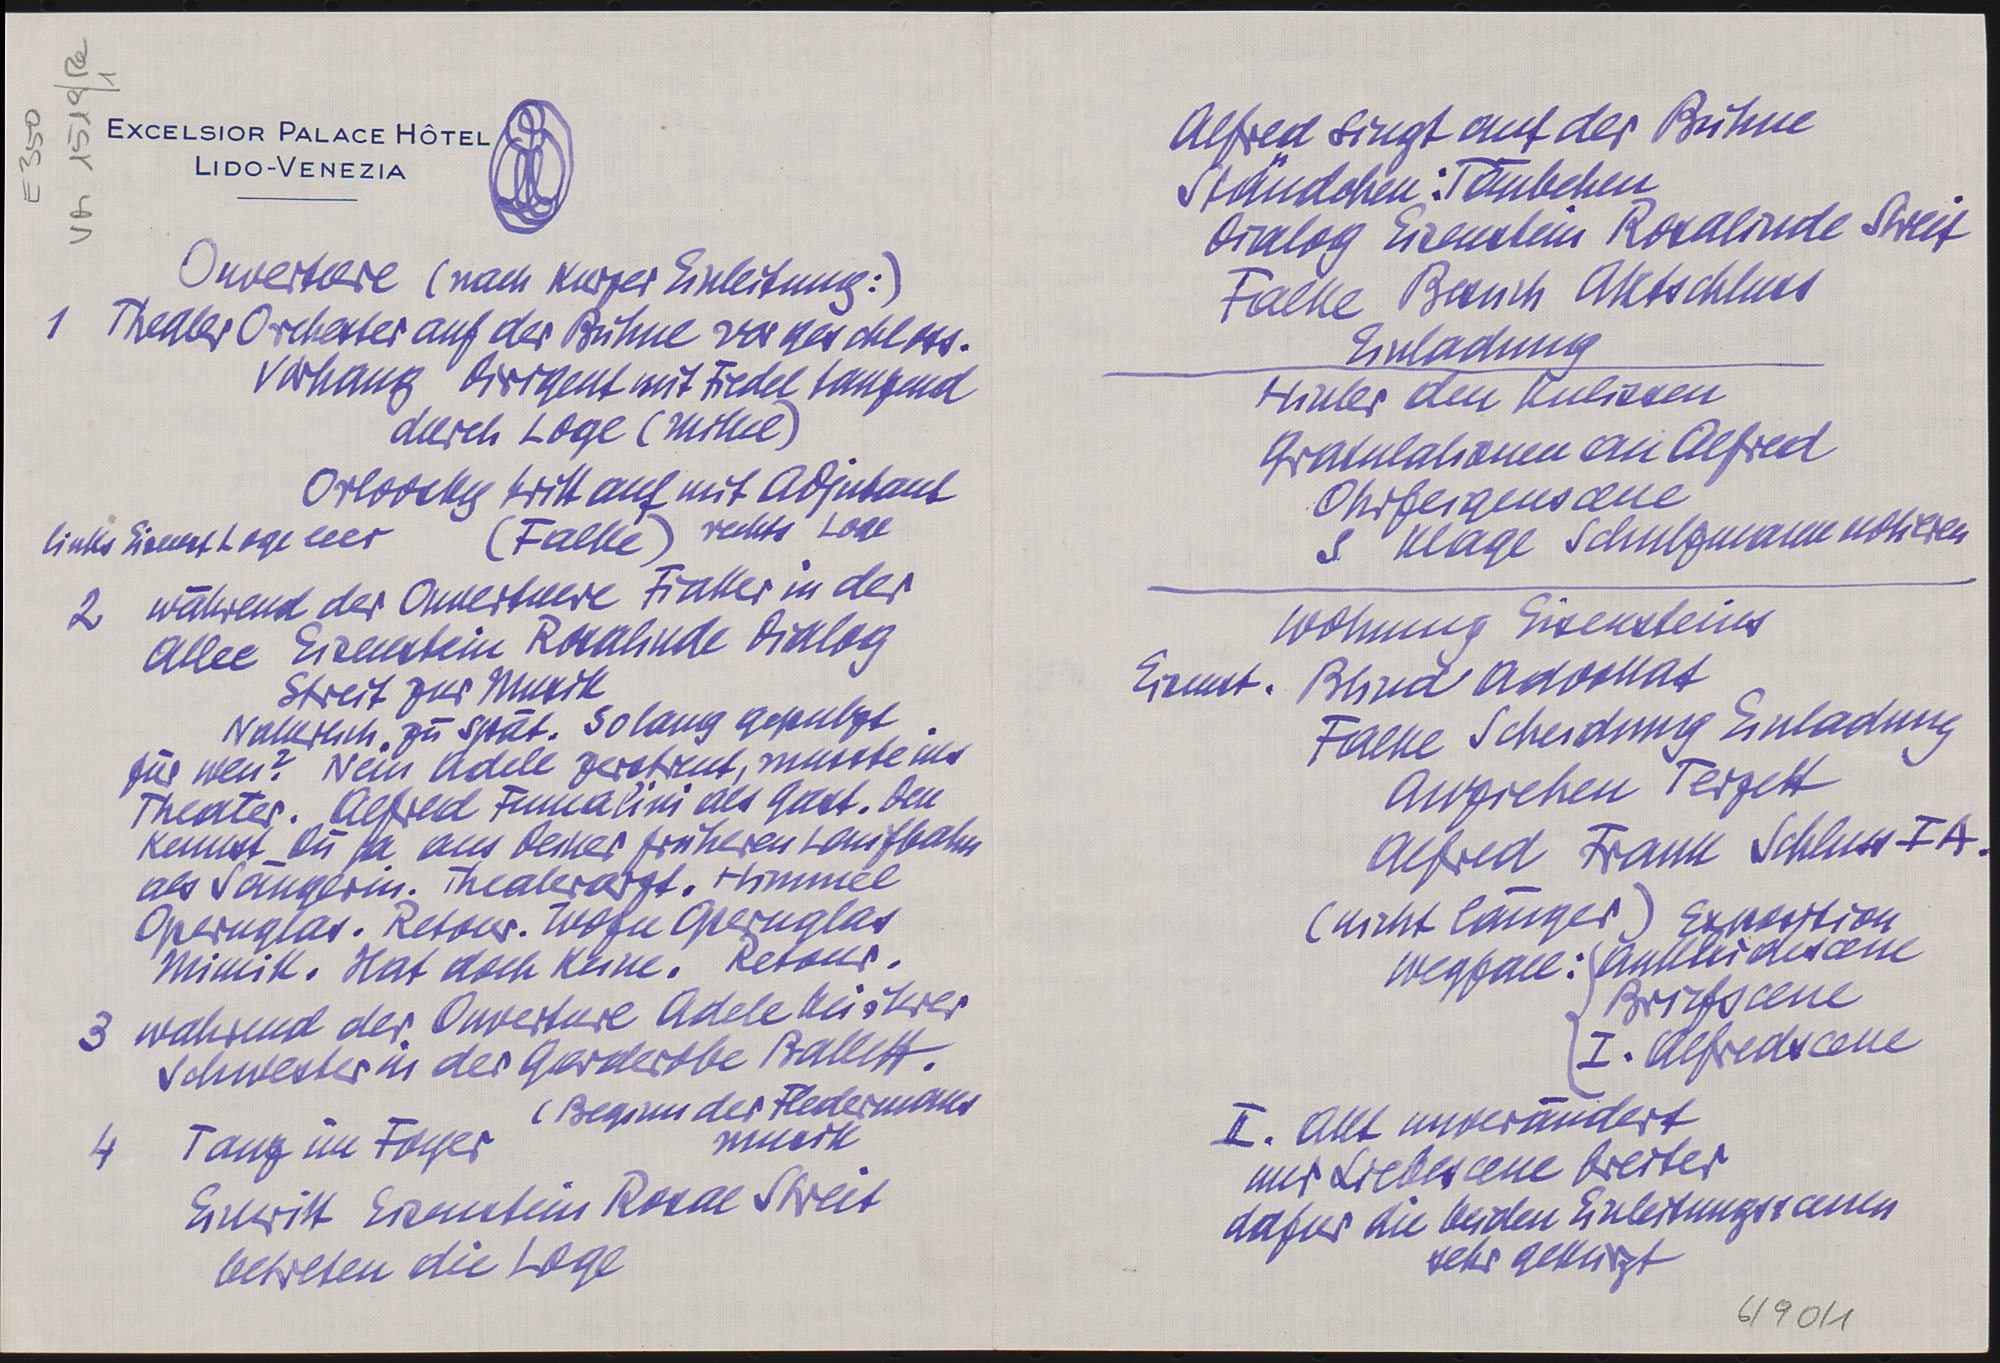 E 350
VM 1519/Re
1
EXCELSIOR PALACE HÔTEL
LIDO-VENEZIA
Ouvertuere (nach kurzer Einleitung:)
1 Theater Orchester auf der Bühne vor geschloss.
Vorhang Dirigent mit Fiedel tanzend
durch Loge (Mitte)
Orlovsky tritt auf mit Adjutant
links Eisenst Loge leer (Falke) rechts Loge
2 während der Ouvertuere Fiaker in der
Allee Eisenstein Rosalinde Dialog
Streit zur Musik
Natürlich zu spät. So lang geputzt
für wen? Nein Adele zerstreut, musste ins
Theater. Alfred als Gast. Den
kennst Du ja aus Deiner früheren Laufbahn
als Sängerin. Theaterarzt. Himmel
Opernglas. Retour. Wozu Opernglas
Mimik. Hat doch keine. Retour.
3 während der Ouverture Adele bei ihrer
Schwester in der Garderobe Ballett.
(Beginn der Fledermaus
4 Tanz im Foyer musik
Eintritt Eisenstein Rosal Streit
betreten die Loge
Alfred singt auf der Bühne
Ständchen: Täubchen
Dialog Eisenstein Rosalinde Streit
Falke Besuch Aktschluss
Einladung
Hinter den Kulissen
Gratulationen an Alfred
Ohrfeigenscene
S Klage Schutzmann notieren
Wohnung Eisensteins
Eisenst. Blind Advokat
Falke Scheidung Einladung
Anziehen Terzett
Alfred Frank Schluss I A.
(nicht länger) Exposition
Wegfall: Ankleidescene
Briefscene
I. Alfredscene
II. Akt unverändert
nur Liebescene breiter
dafür die beiden Einleitungsscenen
sehr gekürzt
6/90/1